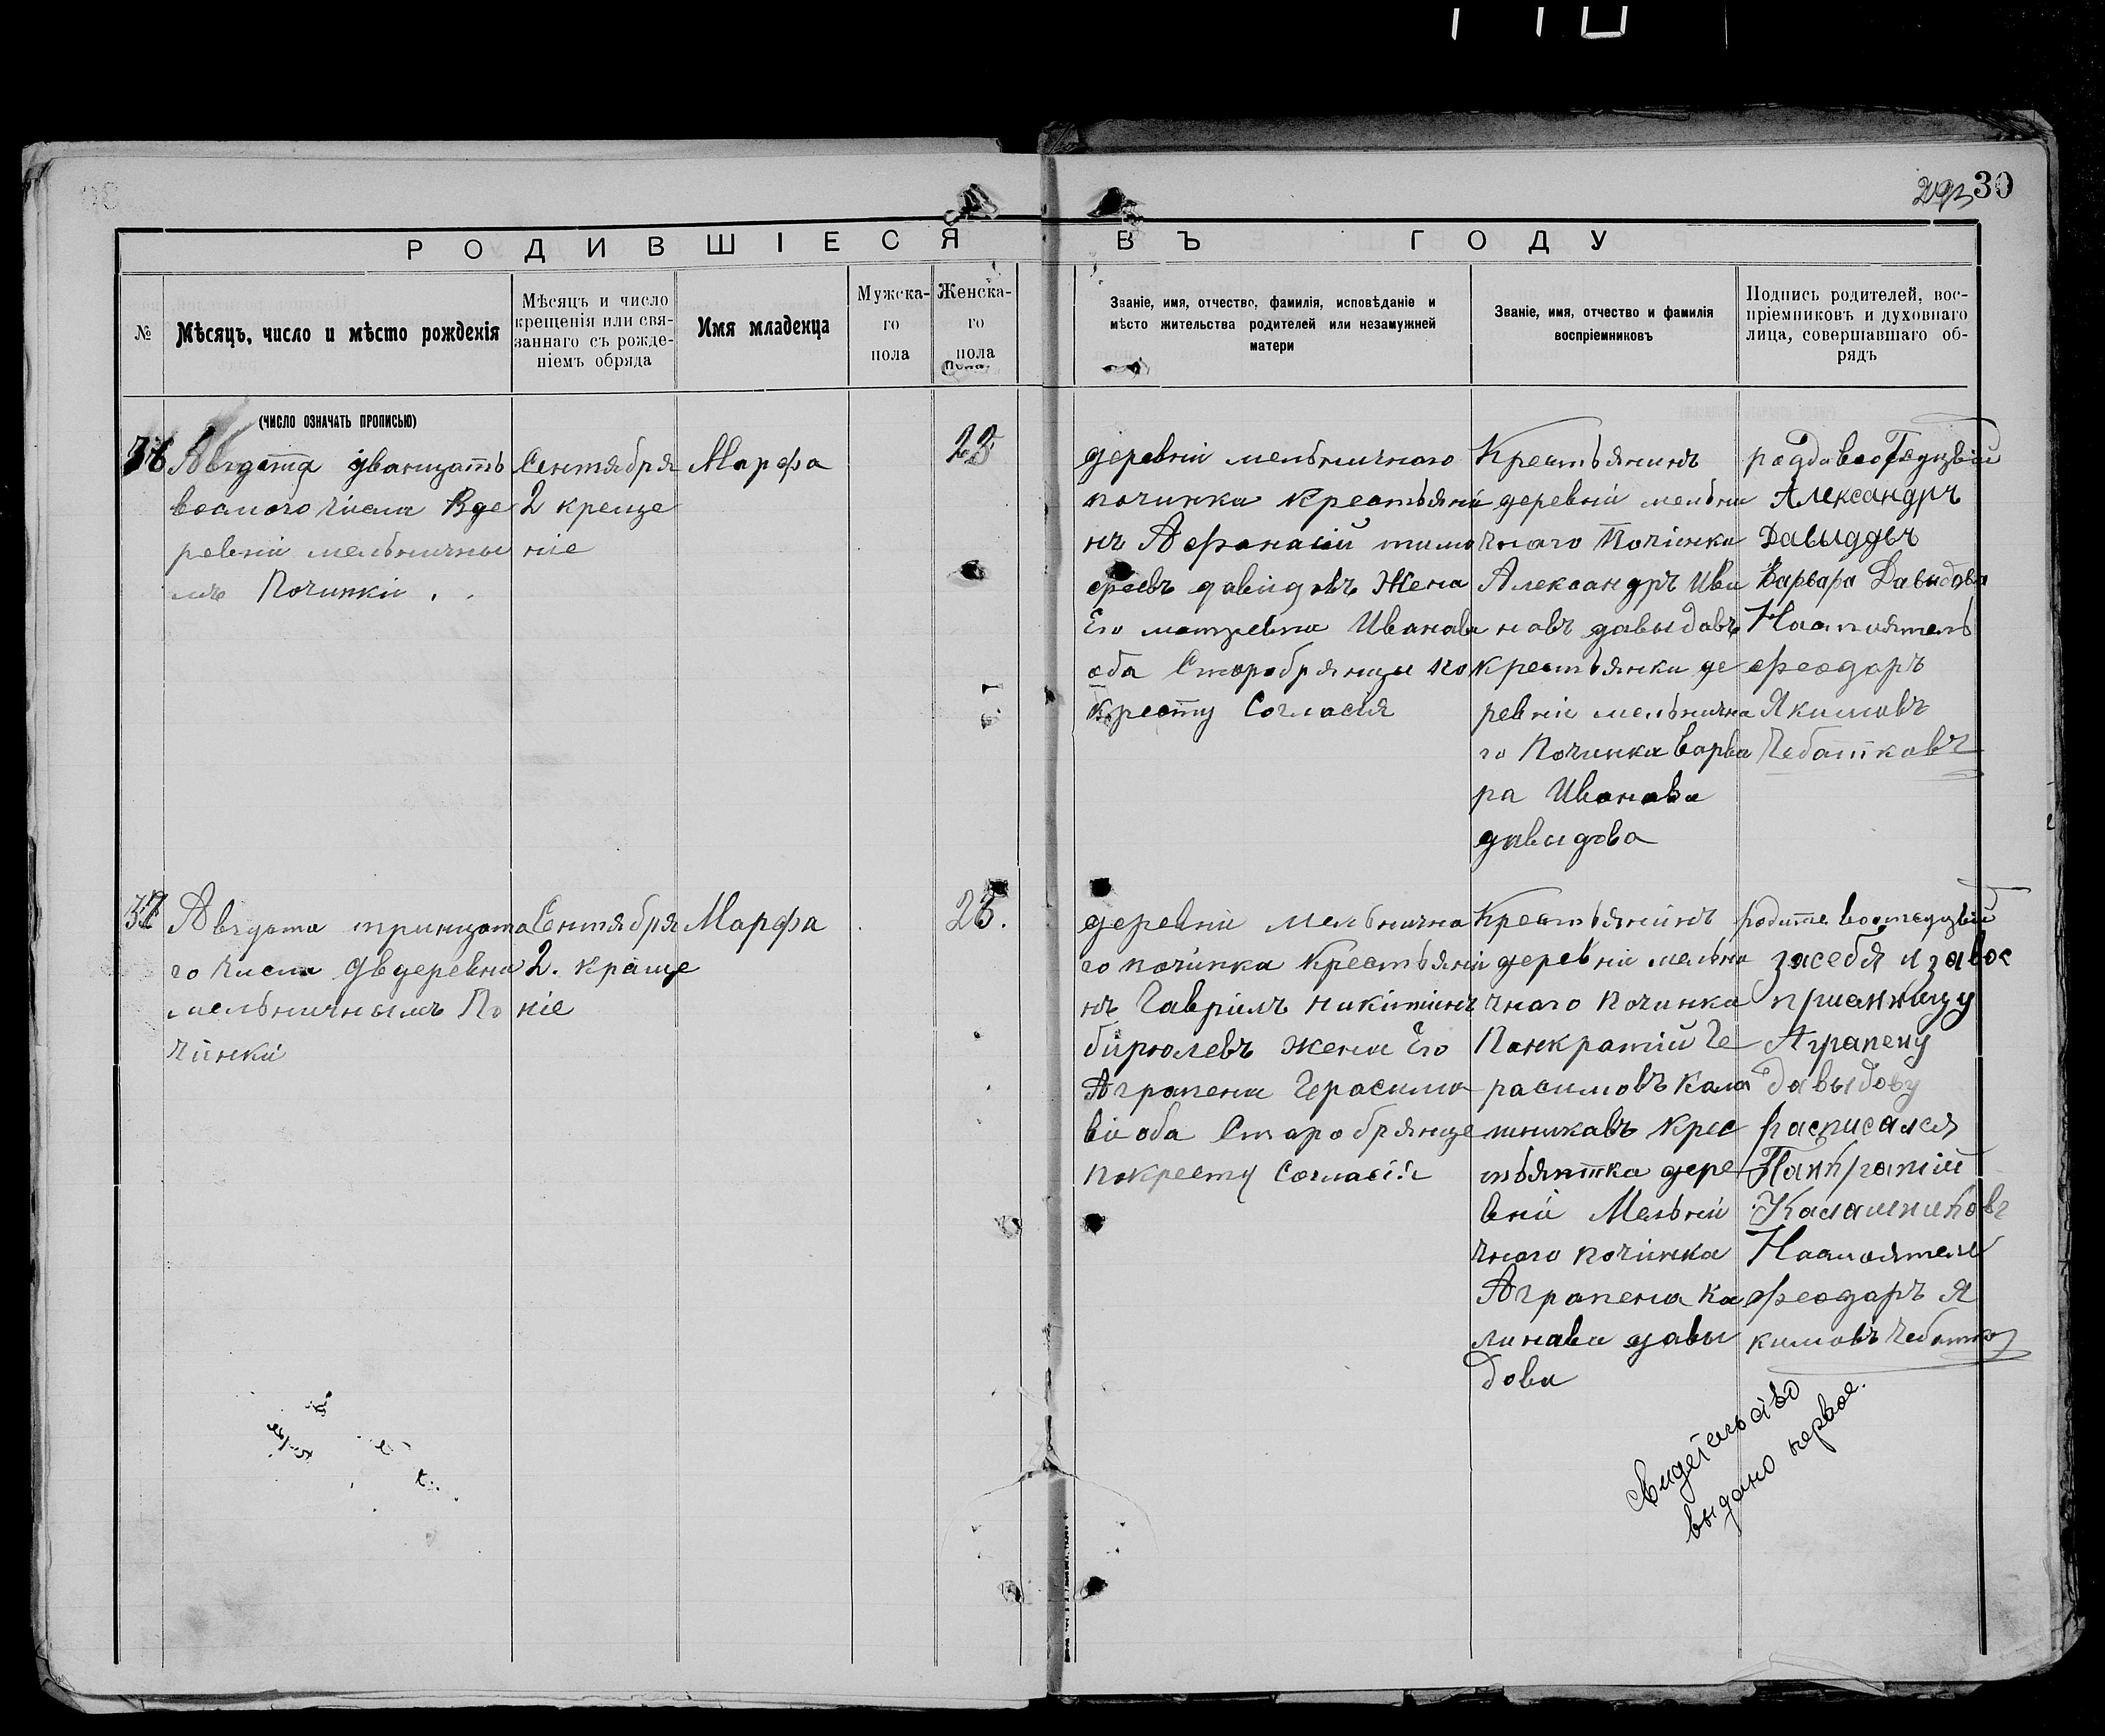 30
РОДИВШІЕСЯ ВЪ ГОДУ
№
Мѣсяцъ, число и мѣсто рожденія
Мѣсяцъ и число
крещенія или свя-
заннаго съ рожде-
ніемъ обряда
Имя младенца
Мужска-
го
пола
Женска-
го
пола
Званіе, имя, отчество, фамилія, исповѣданіе и
мѣсто жительства родителей или незамужней
матери
Званіе, имя, отчество и фамилія
воспріемниковъ
Подпись родителей, вос-
пріемниковъ и духовнаго
лица, совершавшаго об-
рядъ
(ЧИСЛО ОЗНАЧАТЬ ПРОПИСЬЮ)
36
Августа двацать
восмого числа Вде
ревни мельничны
мъ Починки
Сентября
2 креще
ніе
Марфа
деревни мельничного
починка крестьяни
нъ Афонасий тимо
феевъ давидовъ Жена
Его матрена Иванава
оба Старобрянцы по
кресту Согласия
Крестьянинъ
деревни мельни
чнаго Починка
Александръ Ива
новъ давыдавъ
крестьянка де
ревни мельнична
го Починка варва
ра Иванава
давыдова
Александръ
Давыдовъ
Варвара Давыдова
Настоятель
феодаръ
Якимовъ
Чеботковъ
37
Августа трицата
го числа Вдеревни
мельничнымъ По
чинки
Сентября
2. краще
ніе
Марфа
23.
деревни мельнична
го починка Крестьяни
нъ Гаврилъ никитинъ
бирюлевъ жена Его
Аграпена Герасимо
ва оба Старобрянце
покресту Согласия
Крестьянинъ
деревни мельни
чнаго починка
Панкратий Ге
расимовъ Кала
шникавъ Крес
тьянтка дере
вни Мельни
чнаго починка
Аграпена Ка
линава давы
дова
засебя и завос
приемницу
Аграпену
давыдову
расписался
Панкратий
Калашниковъ
Настоятель
феодаръ Я
кимовъ Чеботко
Свидетельство
выдано первое.